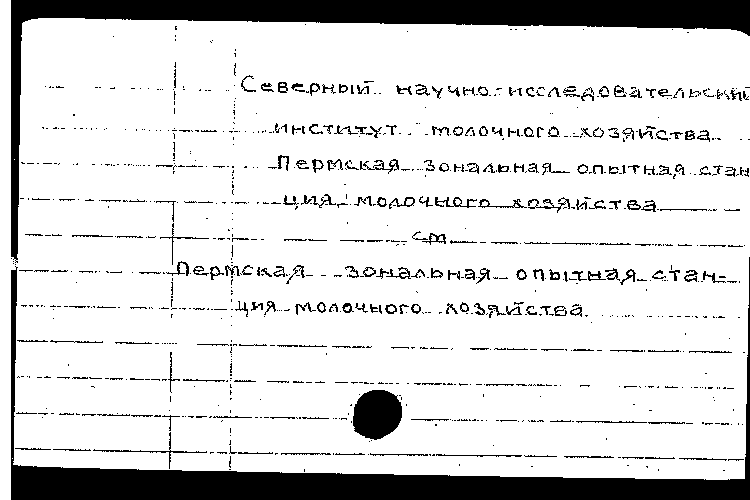 Северный научно-исследовательский
институт молочного хозяйства
Пермская зональная опытная стан
ция молочного хозяйства
см
Пермская зональная опытная стан-
ция молочного хозяйства